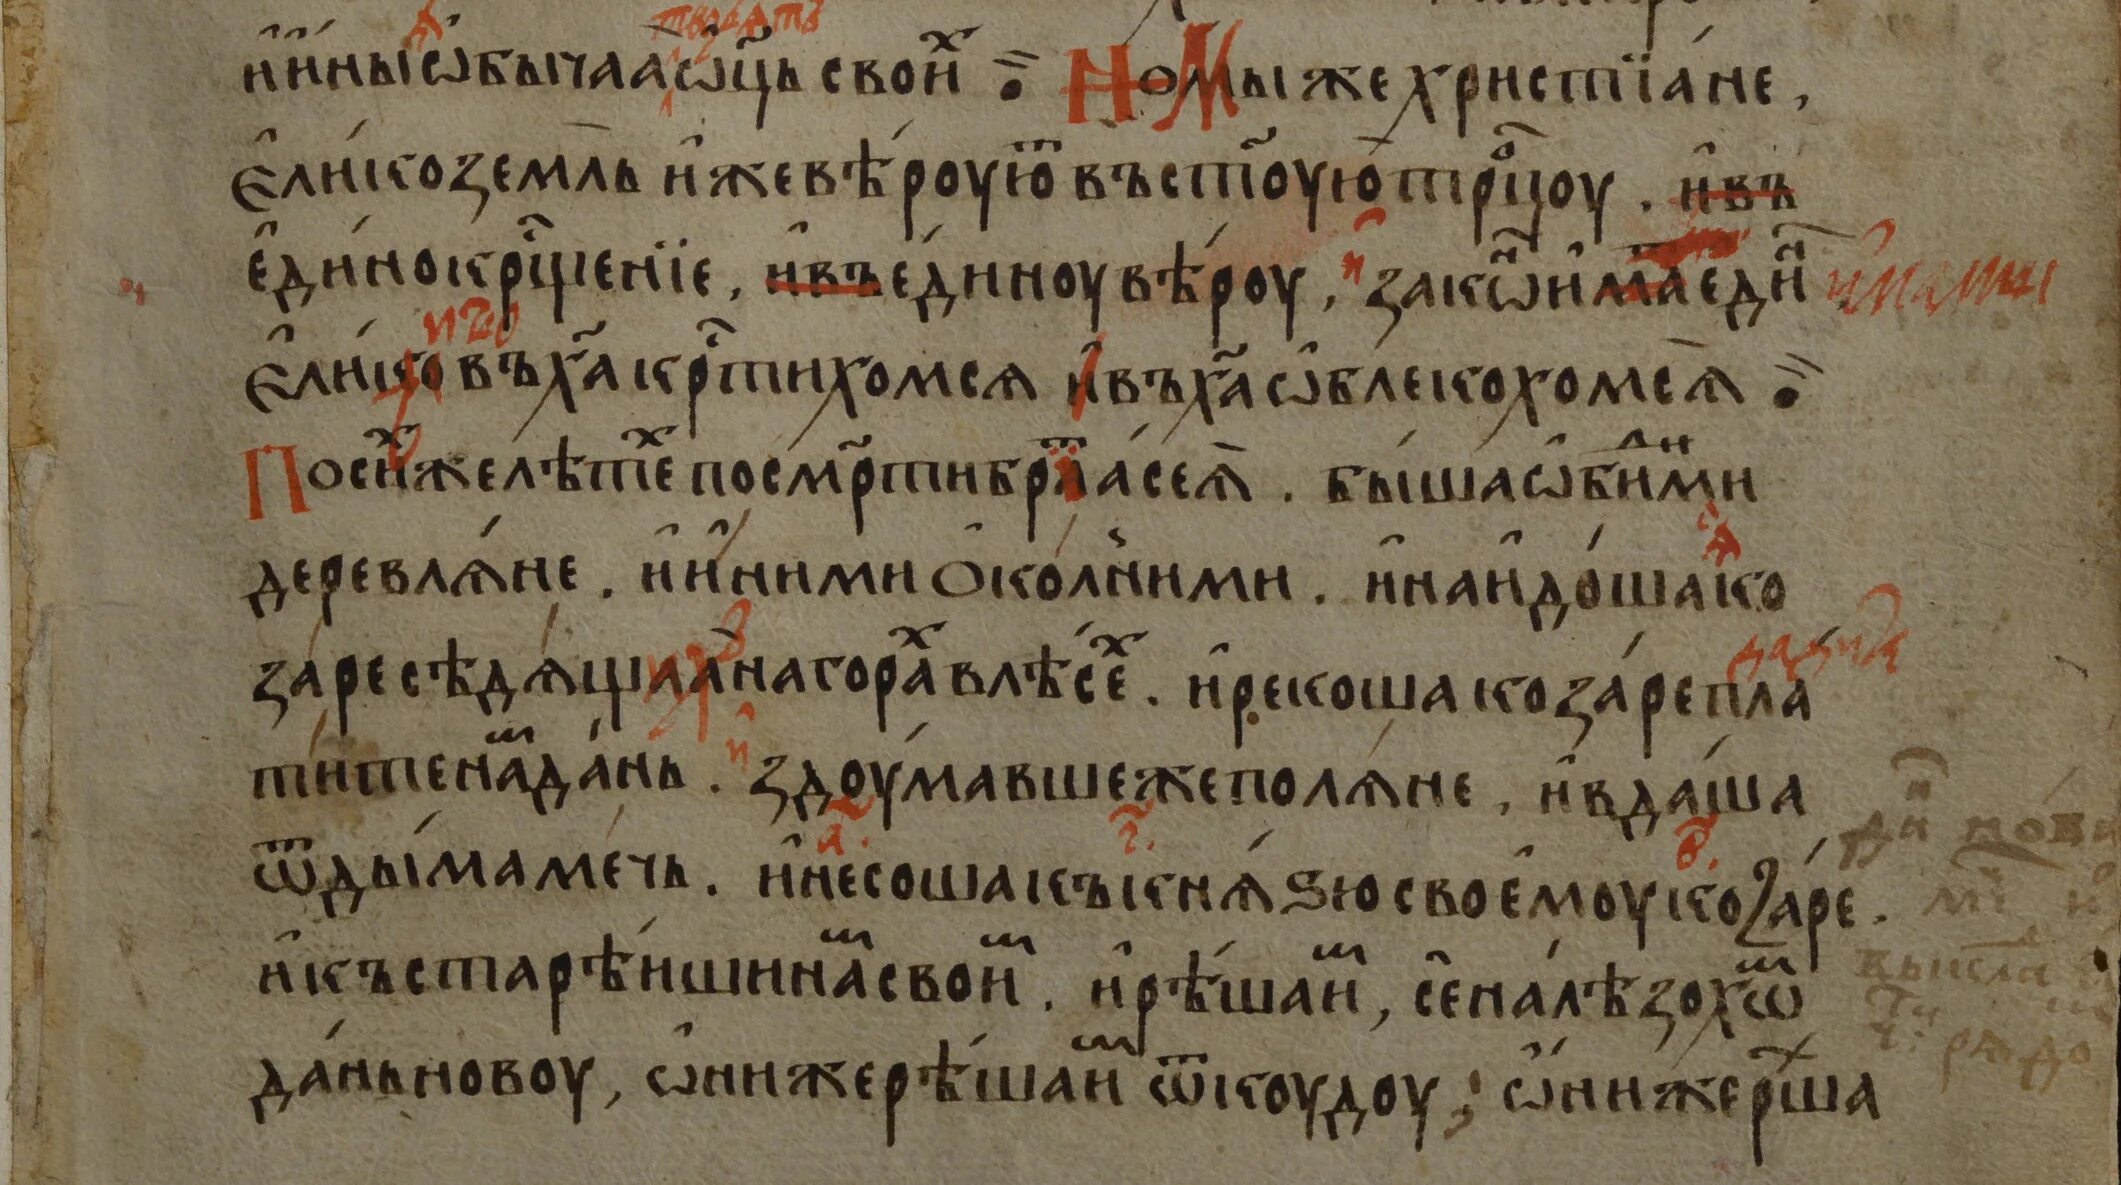 и҆ и҆ны ѡ҆бычаа ѡ҃ць свои̑х. Но мы же христїа́не,
є҆ли́ко земль и҆же вѣ́роую̑т въ ст҃оую тр҇оцоу. и҆ въ
є҆ди́но кр҇щенїе, и҆ въ є҆ди́ноу вѣ́роу, и҆ зако̑н и҆мамы еди̑н
є҆ли́ко въ х҃а кр҇тихомся и҆ въ х҃а ѡ҆блекохомся
По си̑х же лѣ́тех по смр҃ти бра́тїа сея̀. бы́ша ѡ҆би́дими
деревля́не. и҆ и҆ними ѻ҆ко́лними. и҆ наидо́ша ко
за́ре сѣдя́щаа на гора̑х в лѣ́се̑х. и҆ рекоша коза́ре пла
ти́те на̑м да́нь. здоу́мавше же поля́не, и҆ вда́ша
ѿ ды́ма ме́чь. и҆ несоша къ кня́ѕю своемоу коза́ре.
и҆ къ старѣ́ишина̑м свои̑м. и҆ рѣ́ша и̑м, се на́лѣзохѡ̑м
да́нь новоу, ѡ҆ни же рѣ́ша и̑м ѿкоудоу; ѡ҆ни же р̑ша